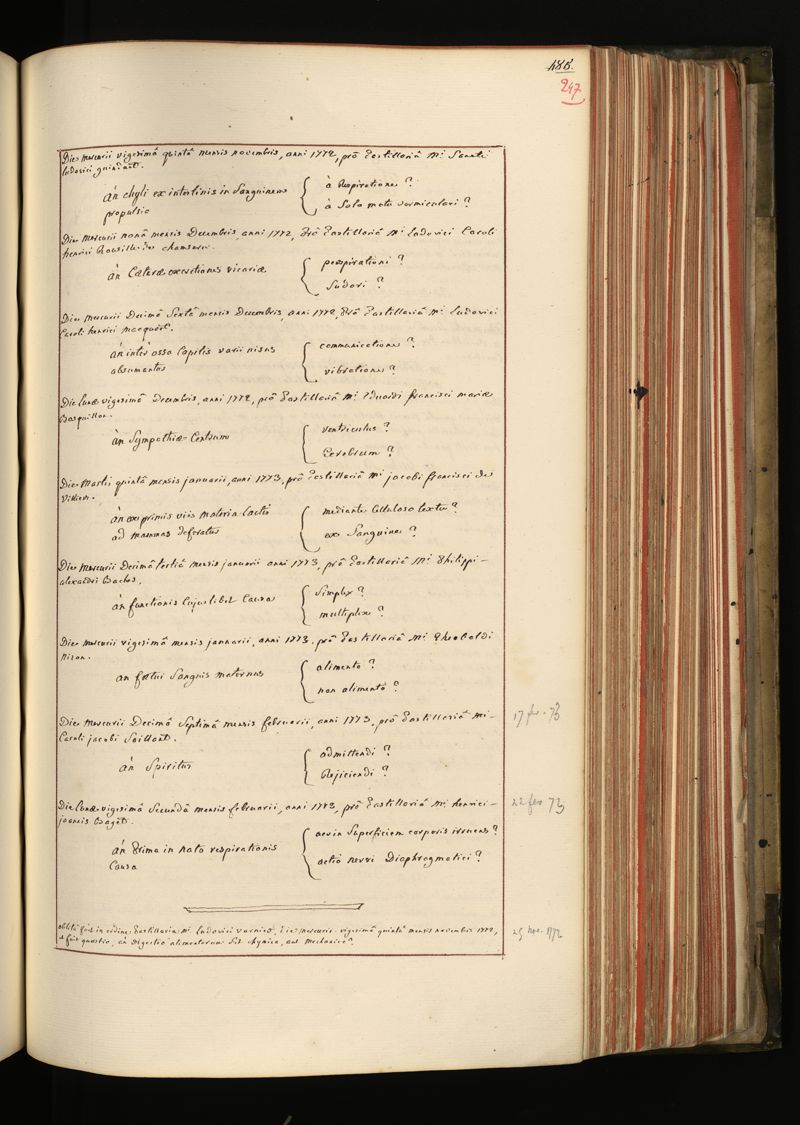 485.
247
Die mercurii vigesimâ quintâ mensis novembris, anni 1772, prô Pastillariâ Mi. Sancti
ludovici guindant.
án chyli ex intestinis in Sanguinem { à Respiratione ?
propulsio { à Solo motu vermiculari ?
Die mercurii nonâ mensis Decembris, anni 1772, prô Pastillariâ Mi. Ludovici Caroli
henrici Roussille de chamseru.
án Cæteræ excretiones vicariæ { perspirationi ?
{ Sudori ?
Die mercurii Decimâ Sextâ mensis Decembris, anni 1772, prô Pastillariâ Mi. Ludovici
Caroli henrici macquart.
án inter ossa Capitis varii nisus { communicatione ?
absumantur { vibratione ?
Die Lunæ vigesimâ Decembris, anni 1772, prô Pastillariâ Mi. Eduardi francisci mariæ
Bosquillon.
án Sympathiæ-Centrum { ventriculus ?
{ Cerebrum ?
Die Martis quintâ mensis januarii, anni 1773, prô Pastillariâ Mi. jacobi francisci de
Villiers.
án ex primis viis materia lactis { mediante Celluloso textu ?
ad mammas deferatur { ex Sanguine ?
Die Mercurii Decimâ tertiâ mensis januarii anni 1773, prô Pastillariâ Mi. Philippi-
alexandri Bacher.
án functionis Cujuslibet Causa { Simplex ?
{ multiplex ?
Die mercurii vigesimâ mensis januarii, anni 1773. prô Pastillariâ Mi. Theobaldi
an foetui Sanguis maternus { alimento ?
{ non alimento ?
Die Mercurii Decimâ Septimâ mensis februarii, anni 1773, prô Pastillariâ Mi-
Caroli jacobi Saillant.
17 fev. 73
án Spiritus { admittendi ?
{ Rejiciendi ?
Die Lunæ vigesimâ Secundâ mensis februarii, anni 1773, prô Pastillariâ Mi. henrici-
joannis Baget.
22 fev 73
án Prima in nato respirationis { aer in Superficiem corporis irruens ?
Causa { actio nervi Diaphragmatici ?
oblita fuit in ordine Pastillaria Mi. Ludovici varnier, Die mercurii vigesimâ quintâ mensis novembris 1772,
& fuit quæstio, an Digestio alimentorum Sit chymica, aut Mechanica ?
25 nov. 1772